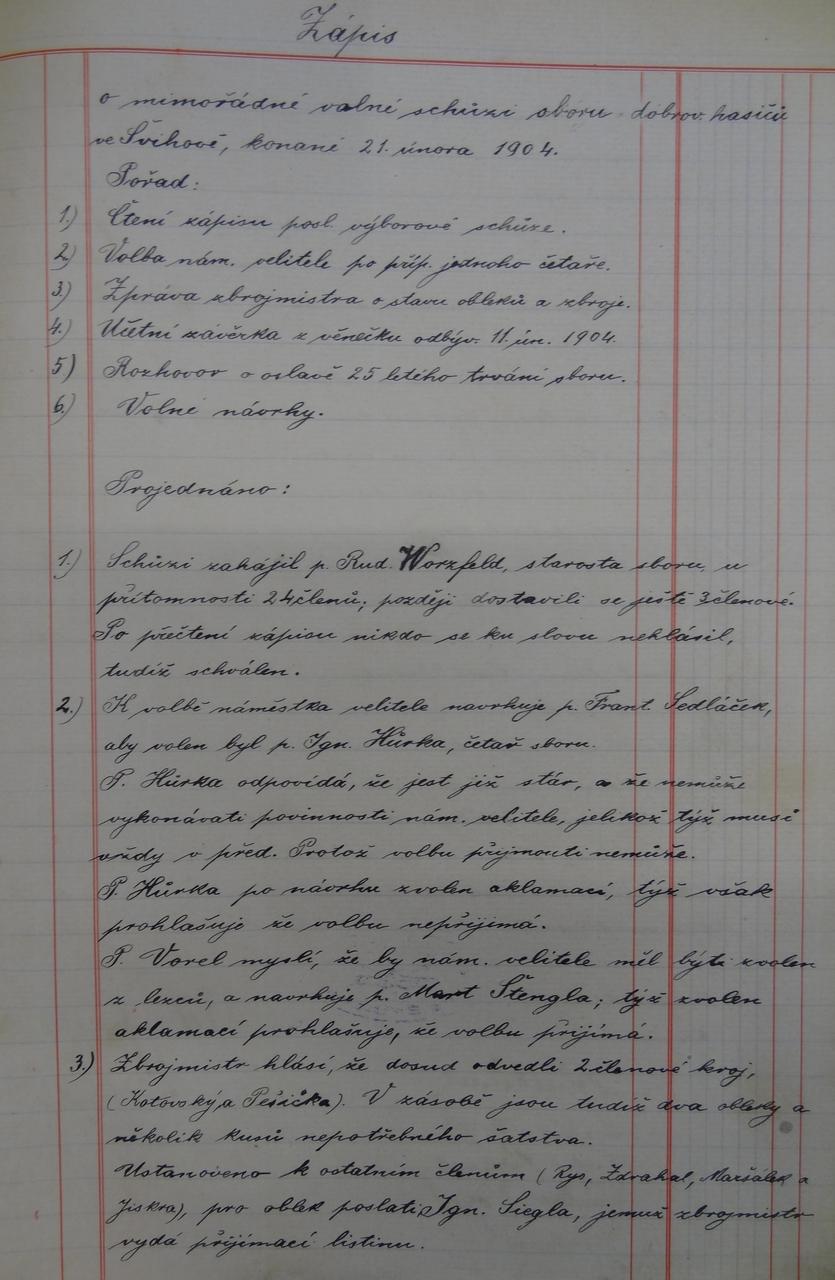 Zápis
o mimořádné valné schůzi sboru dobrov. hasičů
ve Švihově, konané 21. února 1904.
Pořad:
1.) Čtení zápisu posl. výborové schůze.
2.) Volba nám. velitele po příp. jednoho četaře.
3.) Zpráva zbrojmistra o stavu obleků a zbroje.
4.) Účetní závěrka z věnečku odbýv. 11. ún. 1904.
5.) Rozhovor o oslavě 25 letého trvání sboru.
6.) Volné návrhy.
Projednáno:
1.) Schůzi zahájil p. Rud. Worzfeld, starosta sboru, u
přítomnosti 24 členů; později dostavili se ještě 3 členové.
Po přečtení zápisu nikdo se ku slovu nehlásil,
tudíž schválen.
2.) K volbě náměstka velitele navrhuje p. Frant. Sedláček,
aby volen byl p. Ign. Hůrka, četař sboru.
P. Hůrka odpovídá, že jest již stár, a že nemůže
vykonávati povinnosti nám. velitele, jelikož týž musí
vždy v před. Protož volbu přijmouti nemůže.
P. Hůrka po návrhu zvolen aklamací, týž však
prohlašuje že volbu nepřijímá.
P. Vorel myslí, že by nám. velitele měl býti zvolen
z lezců, a navrhuje p. Mart Štengla; týž zvolen
aklamací prohlašuje, že volbu přijímá.
3.) Zbrojmistr hlásí, že dosud odvedli 2 členové kroj,
(Kotovský a Pešička). V zásobě jsou tudíž dva obleky a
několik kusů nepotřebného šatstva.
Ustanoveno k ostatním členům (Rys, Zdrahal, Maršálek a
Jiskra), pro oblek poslati Ign. Siegla, jemuž zbrojmistr
vydá přijímací listinu.